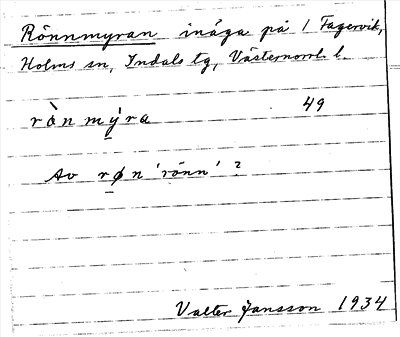 Rönnmyran inäga på 1 Fagervik,
Holms sn, Indals tg, Västernorrl. l.
49
rònmýra
Av røn 'rönn' ?
Valter Jansson 1934